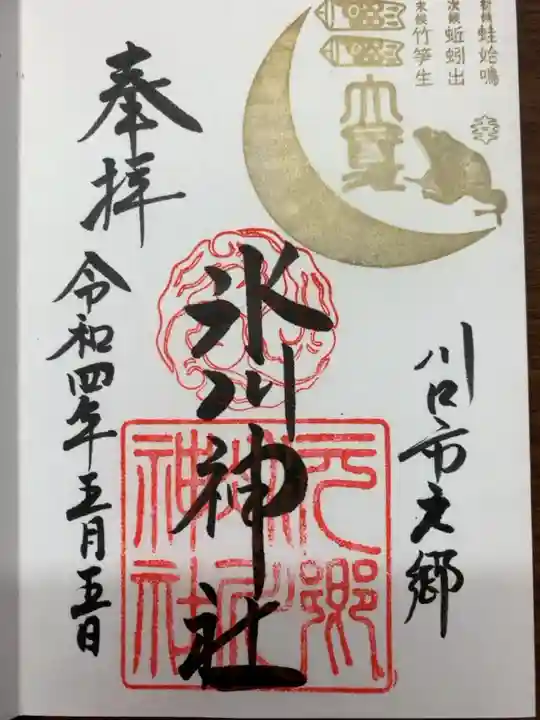 初候 蛙始鳴
次候 蚯蚓出
末候 竹笋生
立夏
幸
川口市元郷
氷川神社
奉拝
令和四年五月五日
元郷
氷川
神社